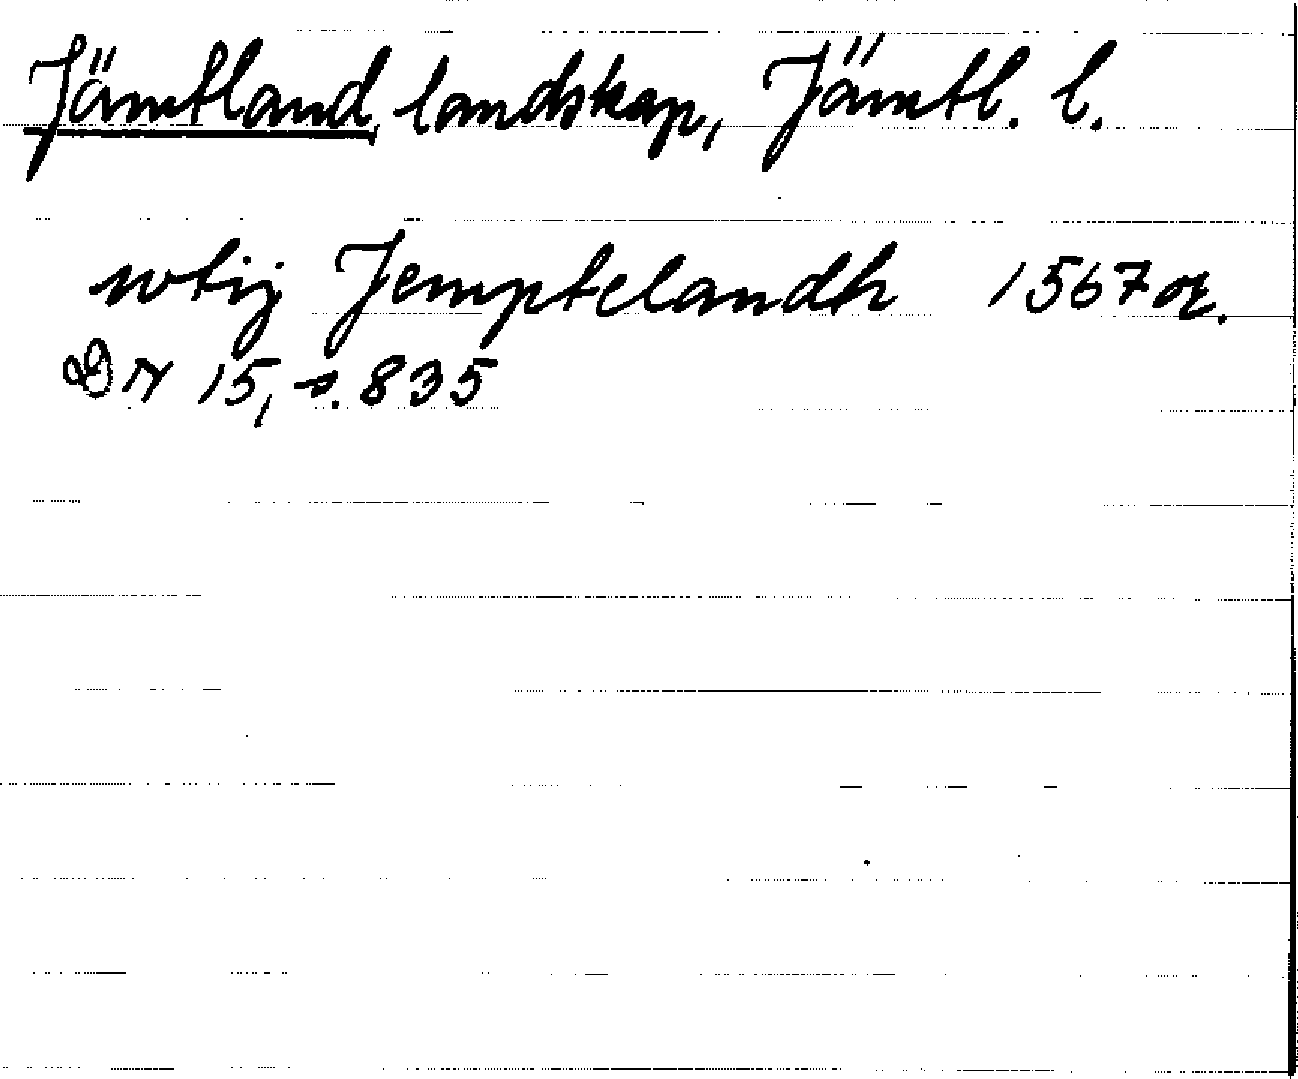 Jämtland landskap, Jämtl. l.
wtij Jemptelandh 1567 or.
DN 15, s. 835